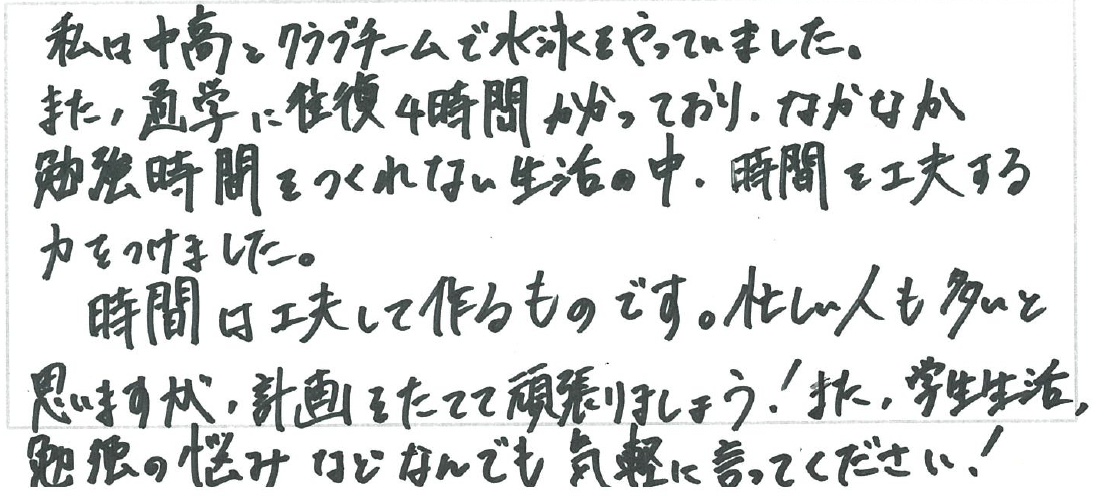 私は中高とクラブチームで水泳をやっていました。
また、通学に往復4時間かかっており、なかなか
勉強時間をつくれない生活の中、時間を工夫する
力をつけました。
時間は工夫して作るものです。忙しい人も多いと
思いますが、計画をたてて頑張りましょう！また、学生生活、
勉強の悩みなどなんでも気軽に言ってください！